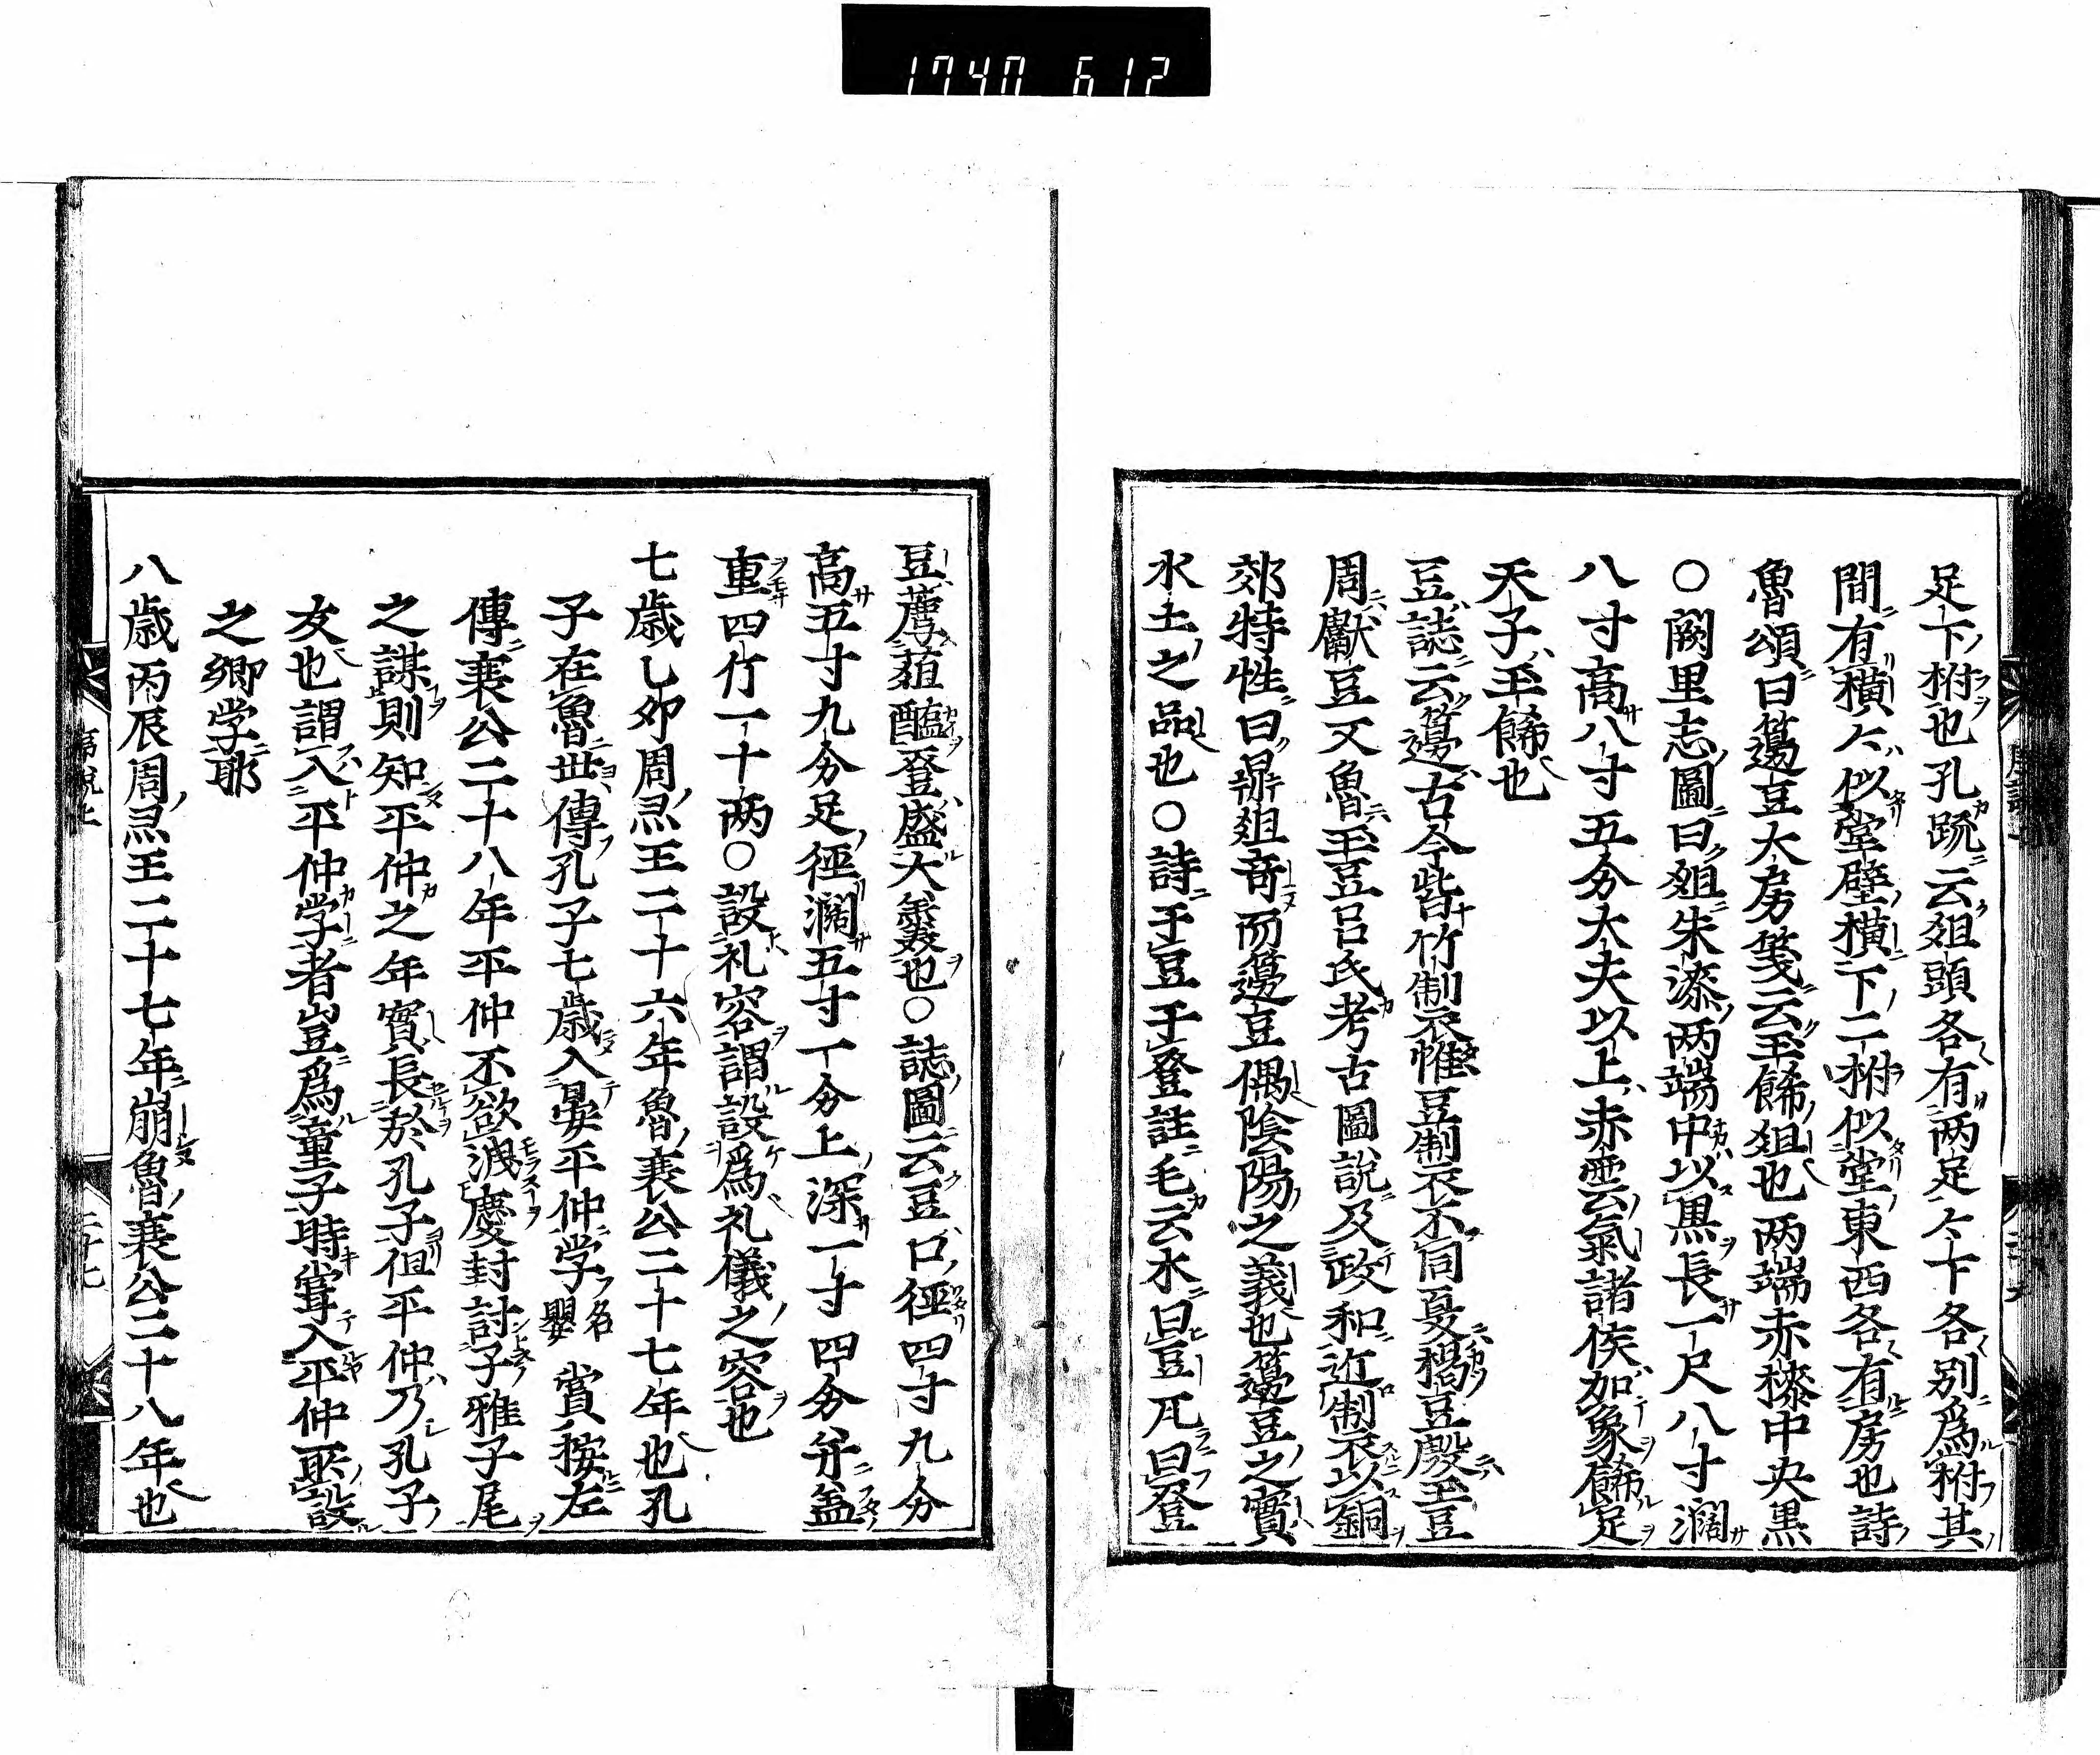 1747 612
足下ノ柎也孔疏云俎頭各有两足々下各別爲柎其
間有橫々似堂壁橫下二柎似堂東西各有房也詩
魯頌曰籩豆大房箋云玉餙俎也两端赤㯃中央黒
○闕里志圖曰俎朱漆两端中以黒長一尺八寸濶
八寸高八寸五分大夫以上赤雲氣諸侯加象餙足
天子玉餙也
豆誌云籩古今皆竹制衣惟豆制衣不同夏楬豆殷玉豆
周獻豆又魯玉豆呂氏考古圖說及政和近制衣以銅
郊特牲曰鼎俎竒而籩豆偶陰陽之義也籩豆之實
水土之品也○詩于豆于登註毛云木曰豆瓦曰登
豆薦葅醢登盛大羹也○誌圖云豆口徑四寸九分
高五寸九分足徑濶五寸一分上深一寸四分并盖
重四斤一十两○設礼容謂設爲礼儀之容也
七歳乙卯周灵王二十六年魯襄公二十七年也孔
子在魯世傳孔子七歳入晏平仲学名嬰賞按左
傳襄公二十八年平仲不欲洩慶封討子雅子尾
之謀則知平仲之年實長於孔子但平仲乃孔子
友也謂入平仲学者豈爲童子時甞入平仲所設
之郷学耶
八歳丙辰周灵王二十七年崩魯襄公二十八年也